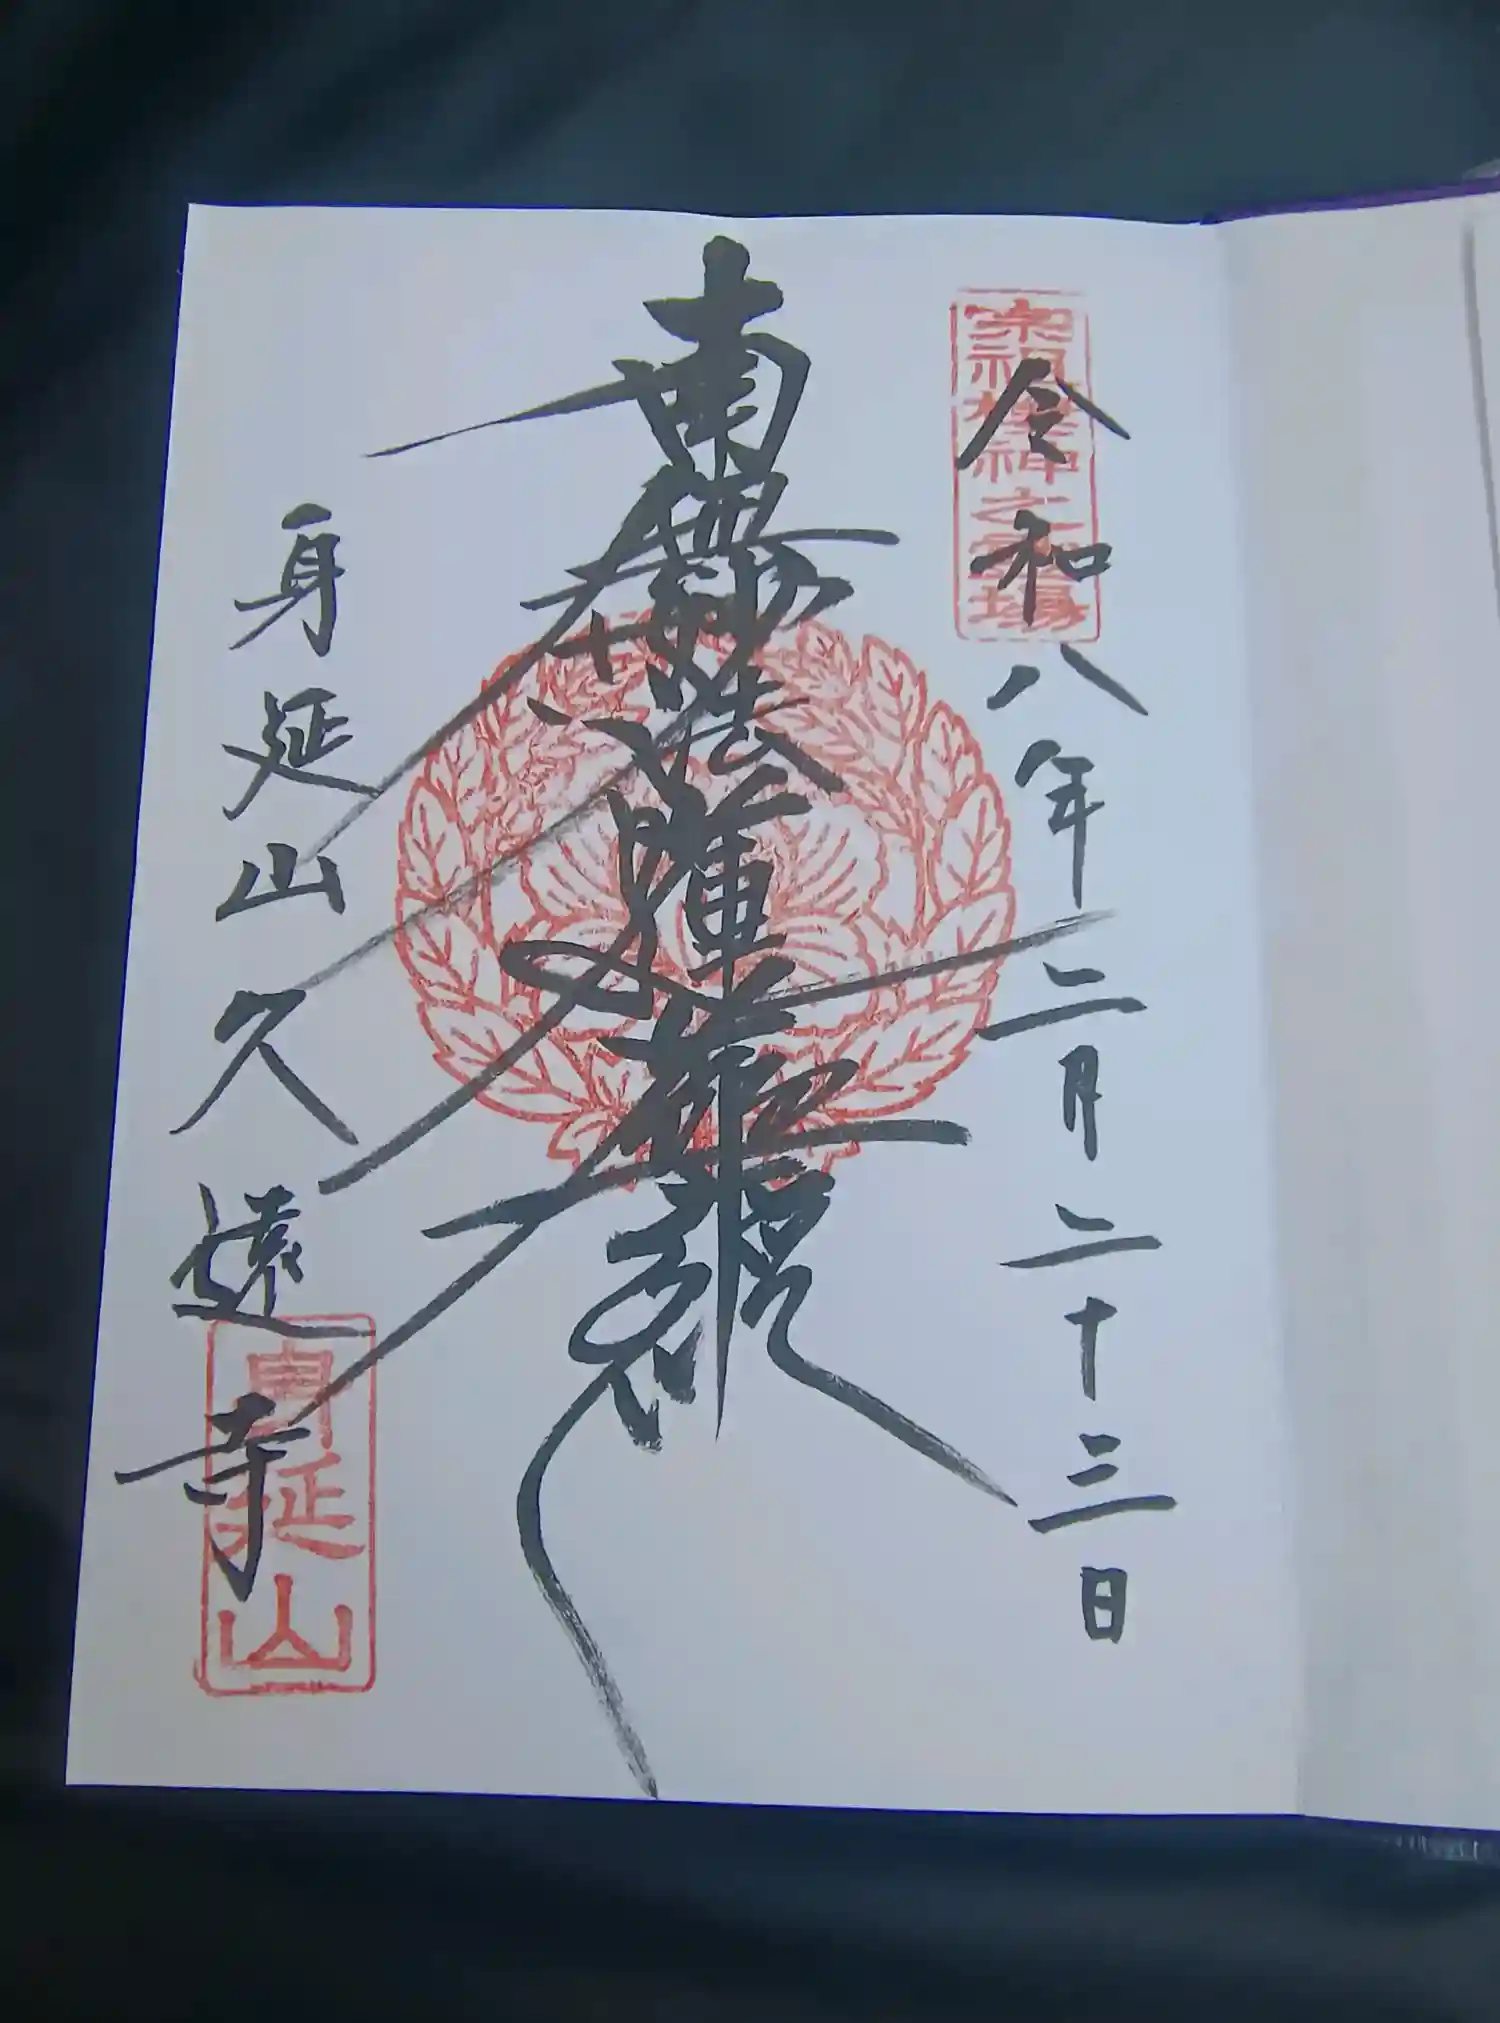 宗祖棲神之霊場
令和八年二月二十三日
南無妙法蓮華経
身延山久遠寺
身延山